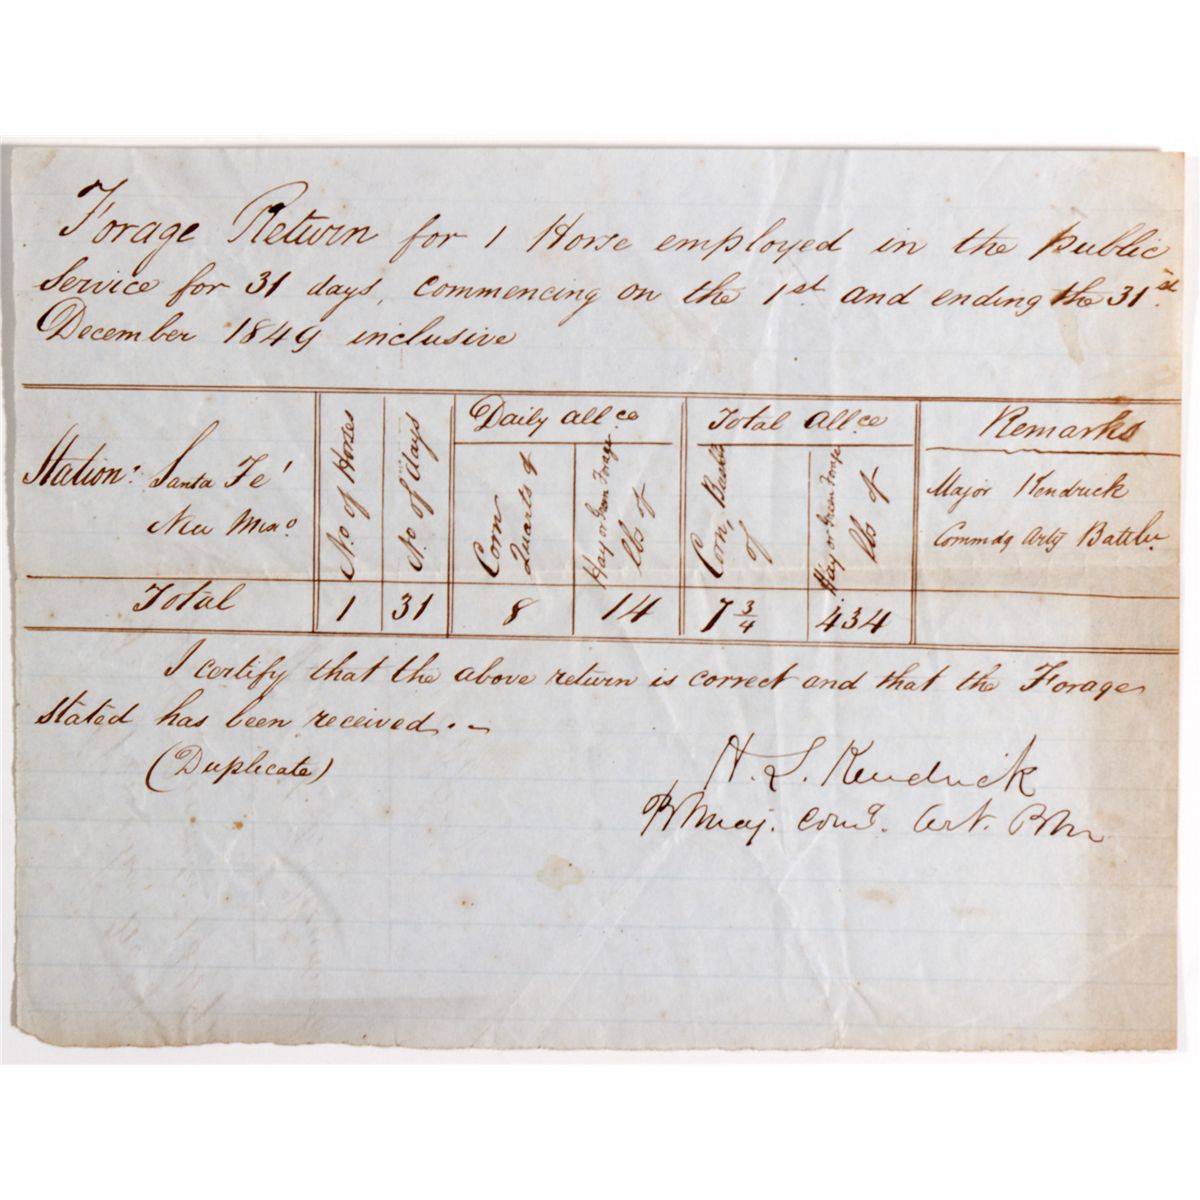 Forage Return for 1 Horse employed in the public
Service for 31 days, commencing on the 1st and ending the 31st
December 1849 inclusive
Station: Santa Fé
New Mexo
No of Horses
No of days
Daily allce
Corn Quarts of
Hay or Green Forage lbs of
Total Allce
Corn, Bushls of
Hay or Green Forage lbs of
Remarks
Major Kendrick
Commdg Arty Battln.
Total 1 31 8 14 7 3/4 434
I certify that the above return is correct and that the Forage
stated has been received. -
(Duplicate)
H. L. Kendrick
Bt Maj. Comg. Art. Btn